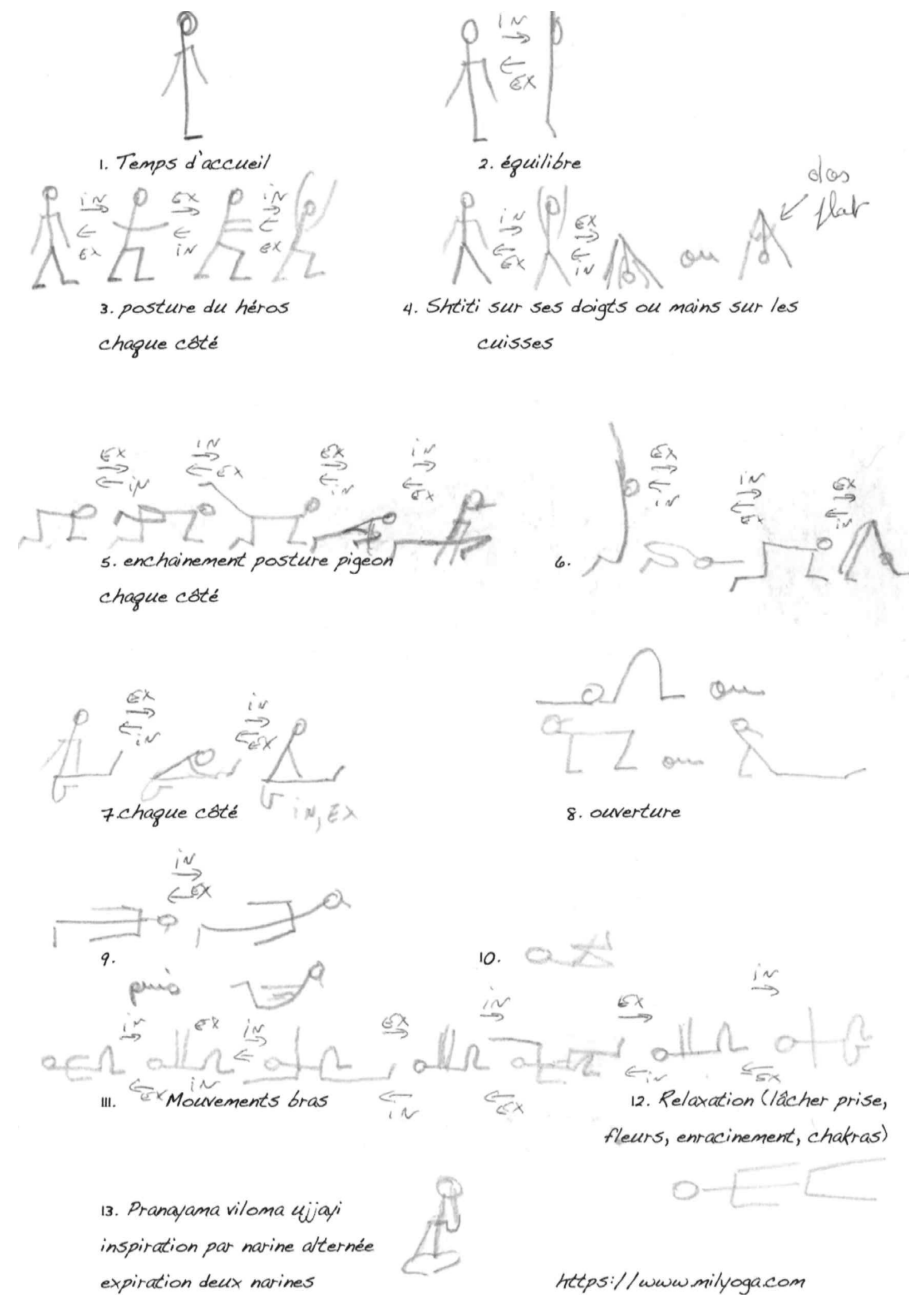 IN
EX
1. Temps d'accueil
2. équilibre
iN EX iN
EX iN EX
iN EX
EX iN
ou
dos
flat
3. posture du héros
chaque côté
4. Shtiti sur ses doigts ou mains sur les
cuisses
EX iN EX iN
iN EX iN EX
EX iN EX
iN EX iN
5. enchainement posture pigeon
chaque côté
6.
EX iN
iN EX
iN, EX
7. chaque côté
ou
ou
8. ouverture
iN
EX
9.
puis
10.
iN EX iN EX iN EX iN
EX iN iN EX iN EX
111. Mouvements bras
12. Relaxation (lâcher prise,
fleurs, enracinement, chakras)
13. Pranayama viloma ujjayi
inspiration par narine alternée
expiration deux narines
https://www.milyoga.com